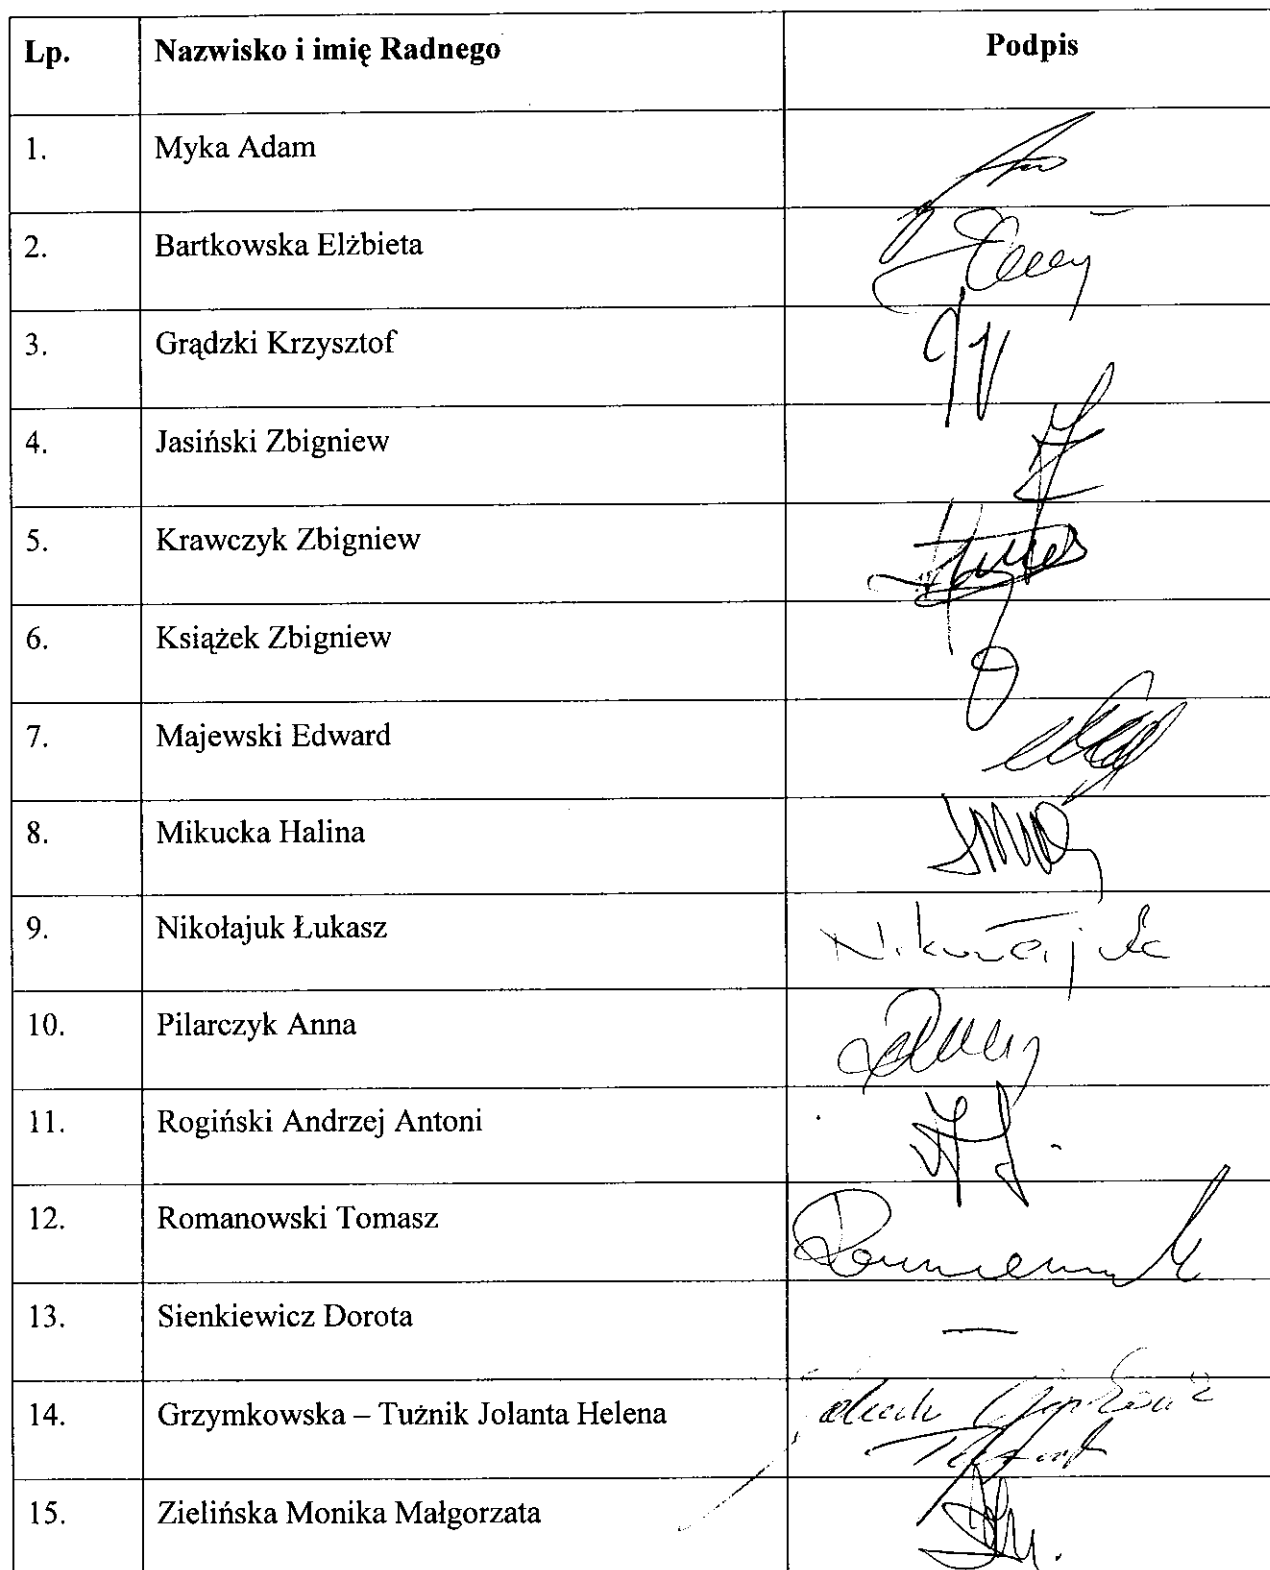 Lp. Nazwisko i imię Radnego Podpis
1. Myka Adam
2. Bartkowska Elżbieta
3. Grądzki Krzysztof
4. Jasiński Zbigniew
5. Krawczyk Zbigniew
6. Książek Zbigniew
7. Majewski Edward
8. Mikucka Halina
9. Nikołajuk Łukasz Nikołajuk
10. Pilarczyk Anna
11. Rogiński Andrzej Antoni
12. Romanowski Tomasz
13. Sienkiewicz Dorota —
14. Grzymkowska – Tużnik Jolanta Helena
15. Zielińska Monika Małgorzata